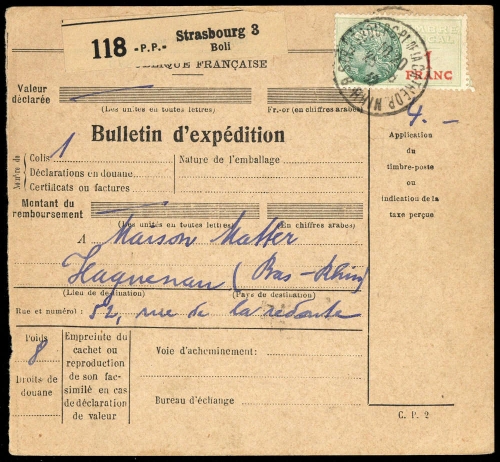 118 -P.P.- Strasbourg 3
Boli
FRANÇAISE
1
FRANC
Valeur
déclarée
(Les unités en toutes lettres)
Fr.-or (en chiffres arabes)
4.-
Bulletin d'expédition
Application
du
timbre-poste
ou
indication de la
taxe perçue
Nombre de
Colis 1
Nature de l'emballage
Déclarations en douane
Certificats ou factures
Montant du
remboursement
(Les unités en toutes lettres)
(En chiffres arabes)
A Maison Matter
Haguenau (Bas-Rhin)
(Lieu de destination)
(Pays de destination)
Rue et numéro : 52, rue de la redoute
Poids
8
Droits de
douane
Empreinte du
cachet ou
reproduction
de son fac-
similé en cas
de déclaration
de valeur
Voie d'acheminement :
Bureau d'échange
C. P. 2